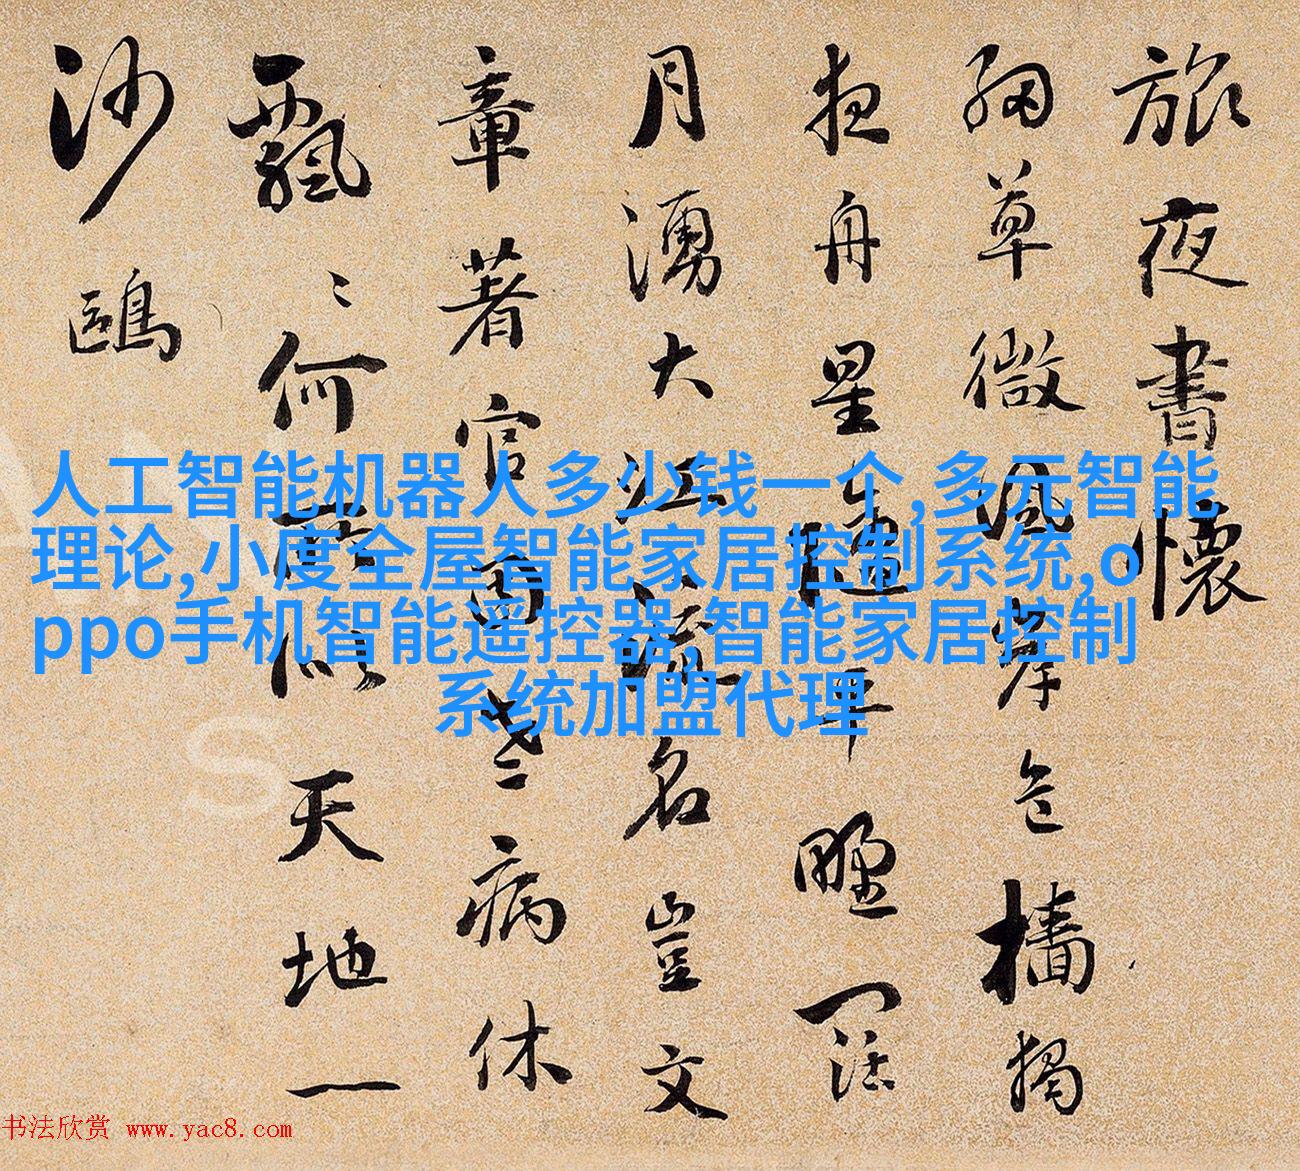 旅夜書懷
細草微風岸危檣獨
夜舟星隨平野闊
月湧大江流名豈文
章著官因老病休
飄〻何所似天地一
沙鷗
人工智能机器人多少钱一个,多元智能
理论,小度全屋智能家居控制系统,o
ppo手机智能遥控器,智能家居控制
系统加盟代理
书法欣赏 www.yac8.com